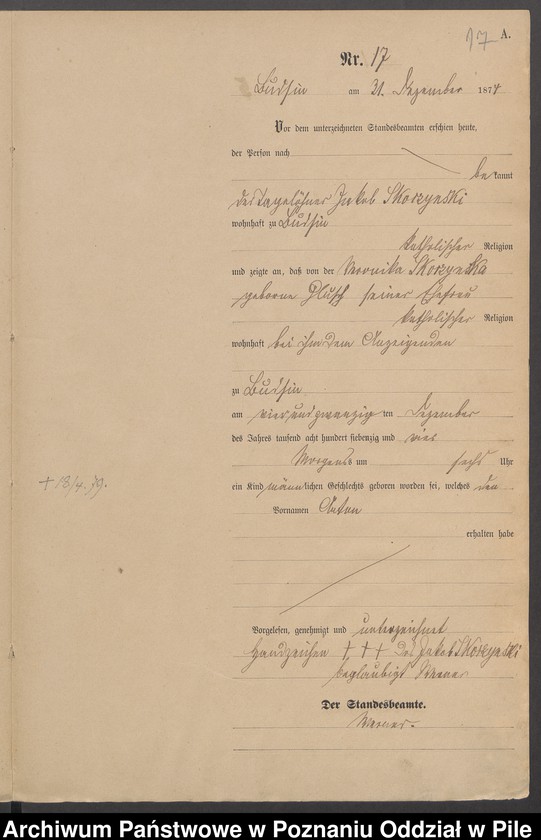 17 A.
Nr. 17
Budsin am 31. Dezember 1874
Vor dem unterzeichneten Standesbeamten erschien heute,
der Person nach
bekannt
der Tagelöhner Jakob Skorzynski
wohnhaft zu Budsin
katholischer Religion
und zeigte an, daß von der Veronika Skorzynska
geborne Glusch seiner Ehefrau
katholischer Religion
wohnhaft bei ihm dem Anzeigenden
zu Budsin
am vierundzwanzig ten Dezember
des Jahres tausend acht hundert siebenzig und vier
Morgens um sechs Uhr
† 18/4. 79.
ein Kind männlichen Geschlechts geboren worden sei, welches den
Vornamen Anton
erhalten habe
Vorgelesen, genehmigt und unterzeichnet
Handzeichen † † † des Jakob Skorzynski
beglaubigt Werner
Der Standesbeamte.
Werner.
Archiwum Państwowe w Poznaniu Oddział w Pile